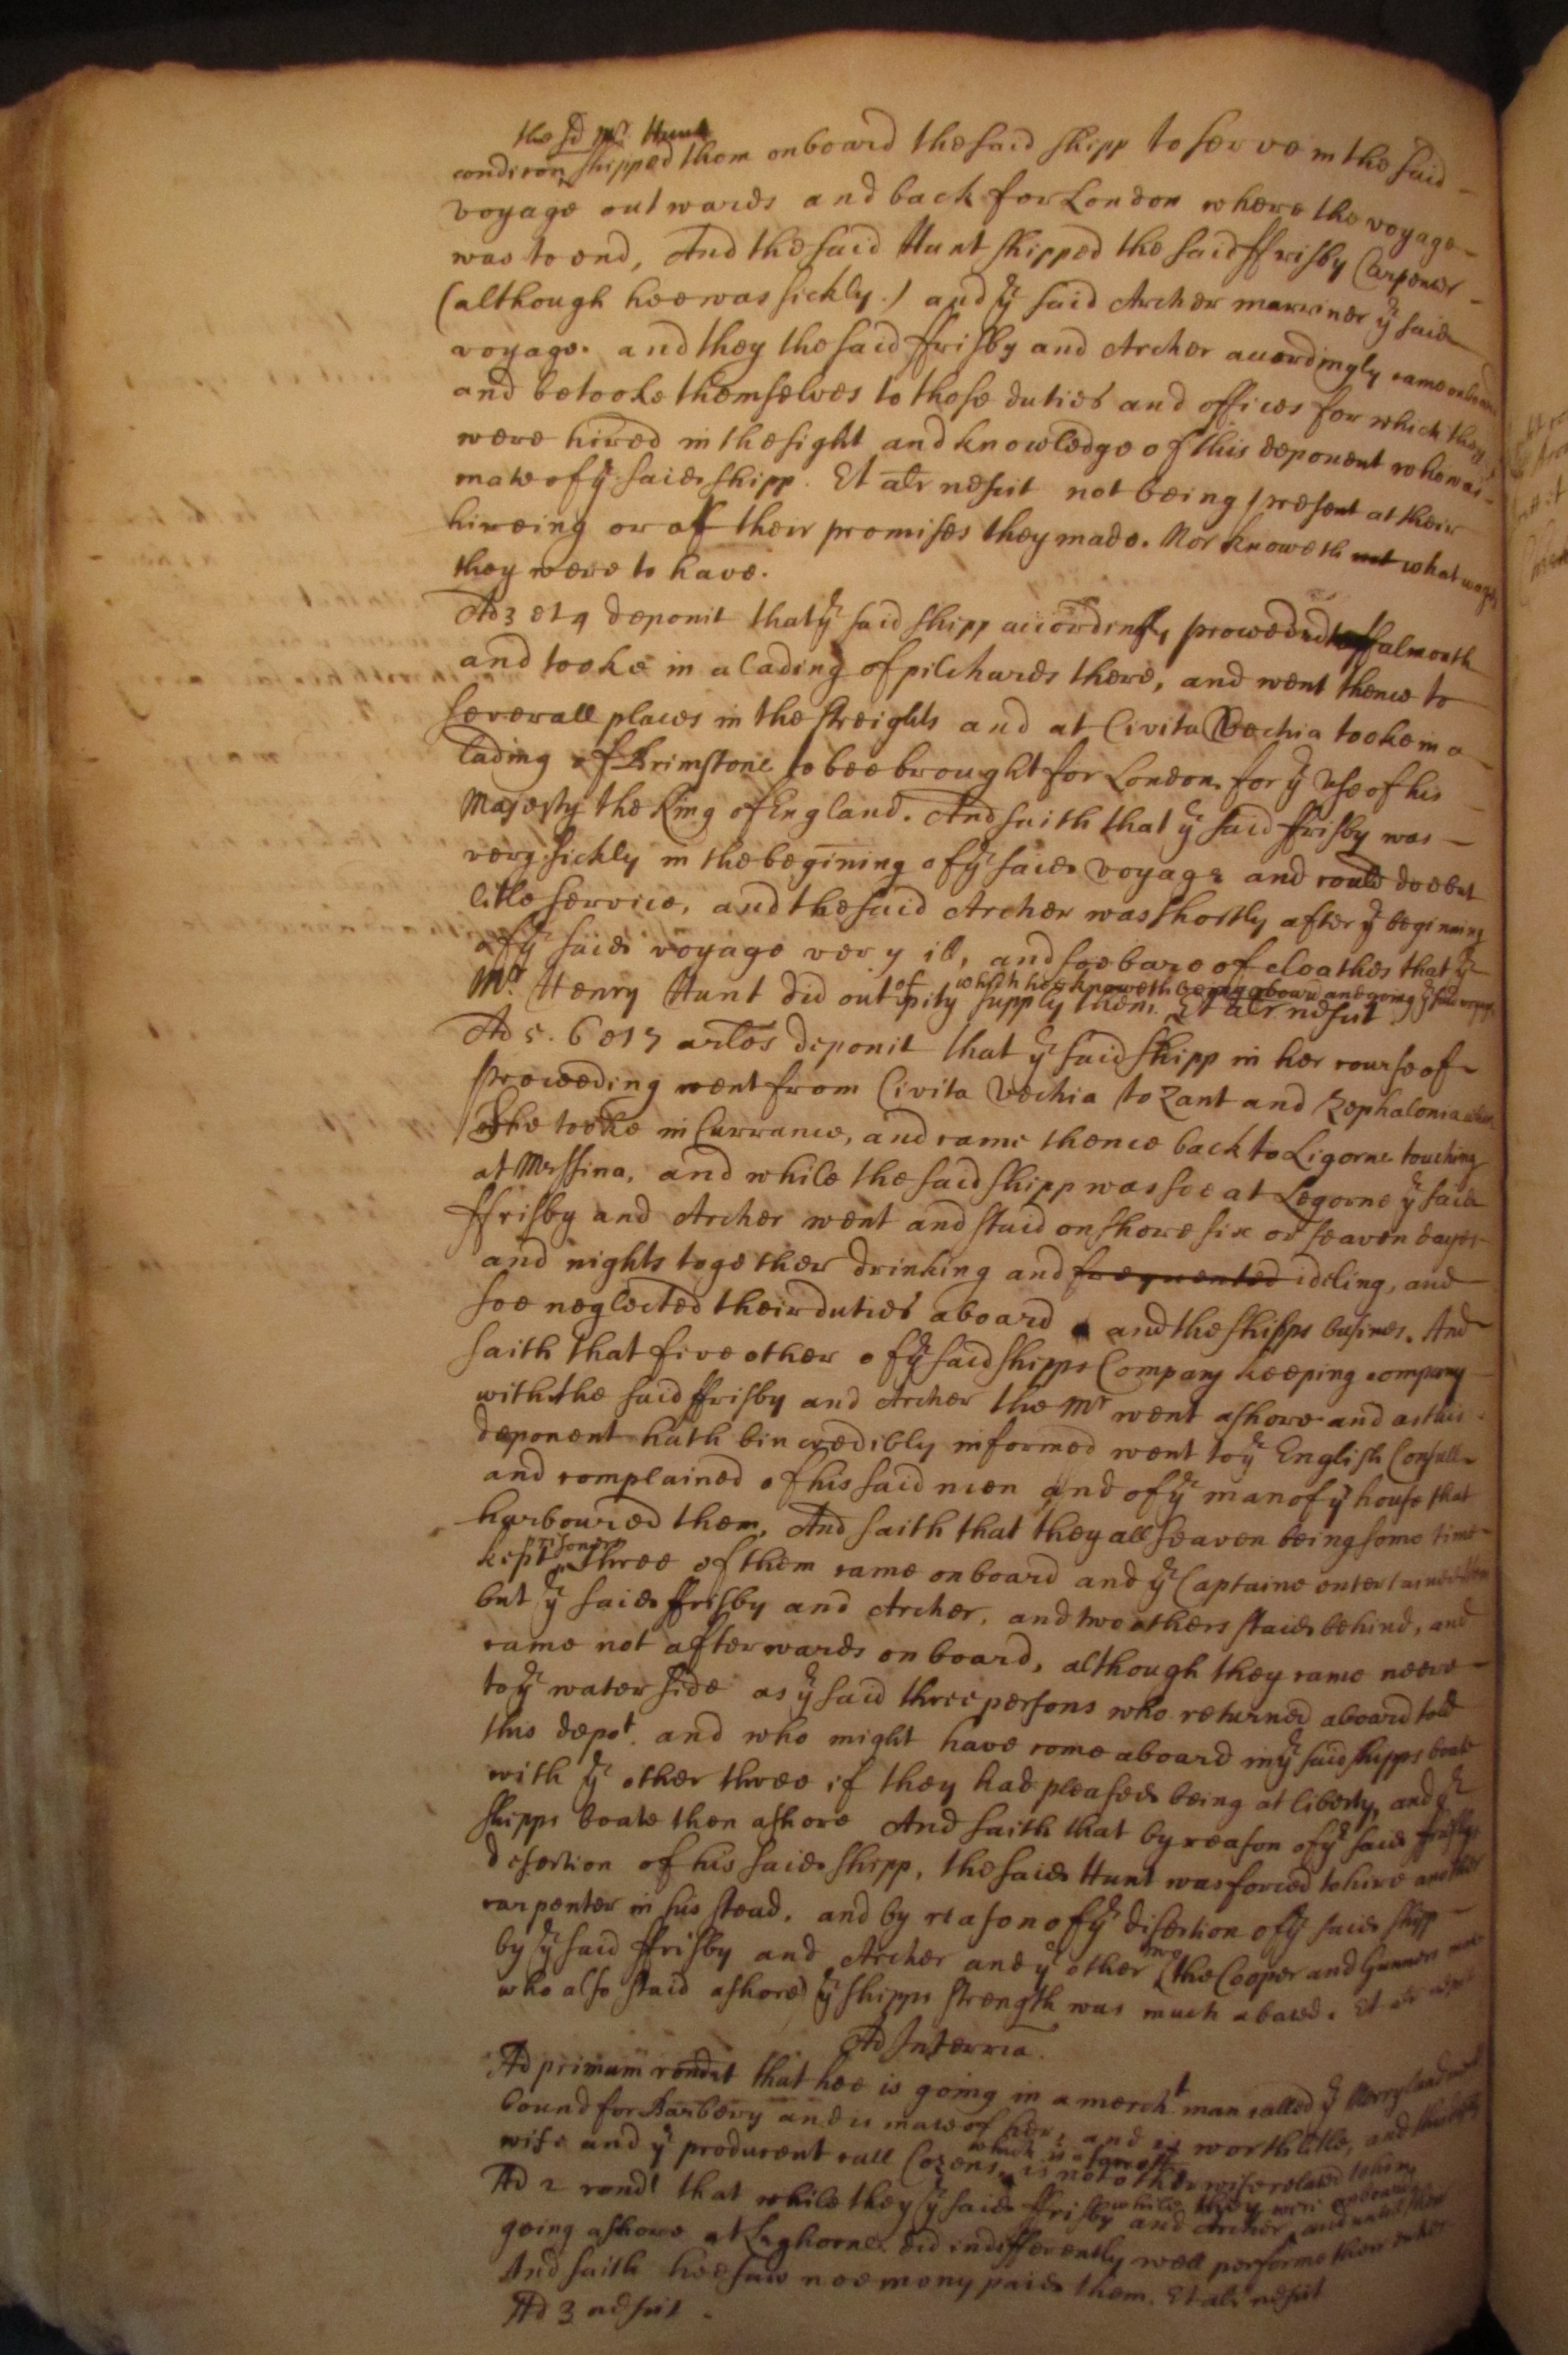 the sd Mr. Hunt
condicon shipped them onboard the said shipp to serve in the said
voyage outwards and back for London where the voyage
was to end, And the said Hunt shipped the said ffrisby Carpenter
(although hee was sickly.) and ye said Archer marriner ye said
voyage. and they the said ffrisby and Archer accordingly came onboard
and betooke themselves to those duties and offices for which they
were hired in the sight and knowledge of this deponent who was
mate of ye said shipp. Et alr nescit not being present at their
hireing or of their promises they made. Nor knoweth not what wages
they were to have.
Ad 3 et 4 deponit that ye said shipp accordingly proceeded to ffalmouth
and tooke in a lading of pilchards there, and went thence to
severall places in the streights and at Civita Vechia tooke in a
lading of Brimstone to bee brought for London for ye use of his
Majesty the King of England. And saith that ye said ffrisby was
very sickly in the begining of ye said voyage and could doe but
litle service, and the said Archer was shortly after ye beginning
of ye said voyage very ill, and soe bare of cloathes that ye
Mr. Henry Hunt did out of pity supply them. which hee knoweth being aboard and going ye said voyage Et alr nescit
Ad 5. 6 et 7 arlos deponit that ye said shipp in her course of
proceeding went from Civita Vechia to Zant and Zephalonia where
shee tooke in Currance, and came thence back to Ligorne touching
at Messina, and while the said shipp was soe at Legorne ye said
ffrisby and Archer went and staid on shore six or seaven dayes
and nights together drinking and frequented idling, and
soe neglected their duties aboard and the shipps busines. And
saith that five other of ye said shipps Company keeping company
with the said ffrisby and Archer the Mr went ashore and as this
deponent hath bin credibly informed went to ye English Consull
and complained of his said men and of ye man of ye house that
harboured them. And saith that they all seaven being some time
kept prisoners three of them came onboard and ye Captaine entertained them
but ye said ffrisby and Archer, and two others staid behind, and
came not afterwards on board, although they came neere
to ye water side as ye said three persons who returned aboard told
this depot. and who might have come aboard in ye said shipps boate
with ye other three if they had pleased being at liberty, and ye
shipps boate then ashore And saith that by reason of ye said ffrisbys
desertion of his said shipp, the said Hunt was forced to hire another
carpenter in his stead, and by reason of ye disertion of ye said shipp
by ye said ffrisby and Archer and ye other two (the Cooper and Gunners mate
who also staid ashore) ye shipps strength was much abated. Et alr nescit
Ad Interria.
Ad primum rondet that hee is going in a mercht man called ye Merryland
bound for Barbery and is mate of her, and is worth litle, and this depts
wife and ye producent call Cozens, which is is not otherwise related to him
Ad 2 rondt that while they ye said ffrisby and Archer while they were onboard and untill their
going ashore at Leghorne did indifferently well performe their duties
And saith hee saw noe mony paid them. Et alr nescit
Ad 3 nescit.